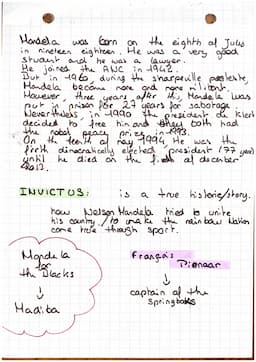 Mandela was born on the eighth of July
in nineteen eighteen. He was a very good
student and he was a lawyer.
He joined the ANC in 1942.
But in 1960, during the sharpeville
Mandela became more and more militant.
However, three years after this, Mandela was
put in prison for 27 years for sabotage.
Nevertheless, in 1990 the president de Klerk
decided to free him and they both had
the nobel peace prize in 1993.
On the tenth of may 1994 He was the
first democratically elected president (77 year)
until he died on the of december
2013.
INVICTUS: is a true historie/story.
how Nelson Mandela tried to unite
his country / to make the rainbow Nation
come true through sport.
Mandela
for
the blacks
↓
Madiba
François
Pienaar
↓
captain of the
Springboks